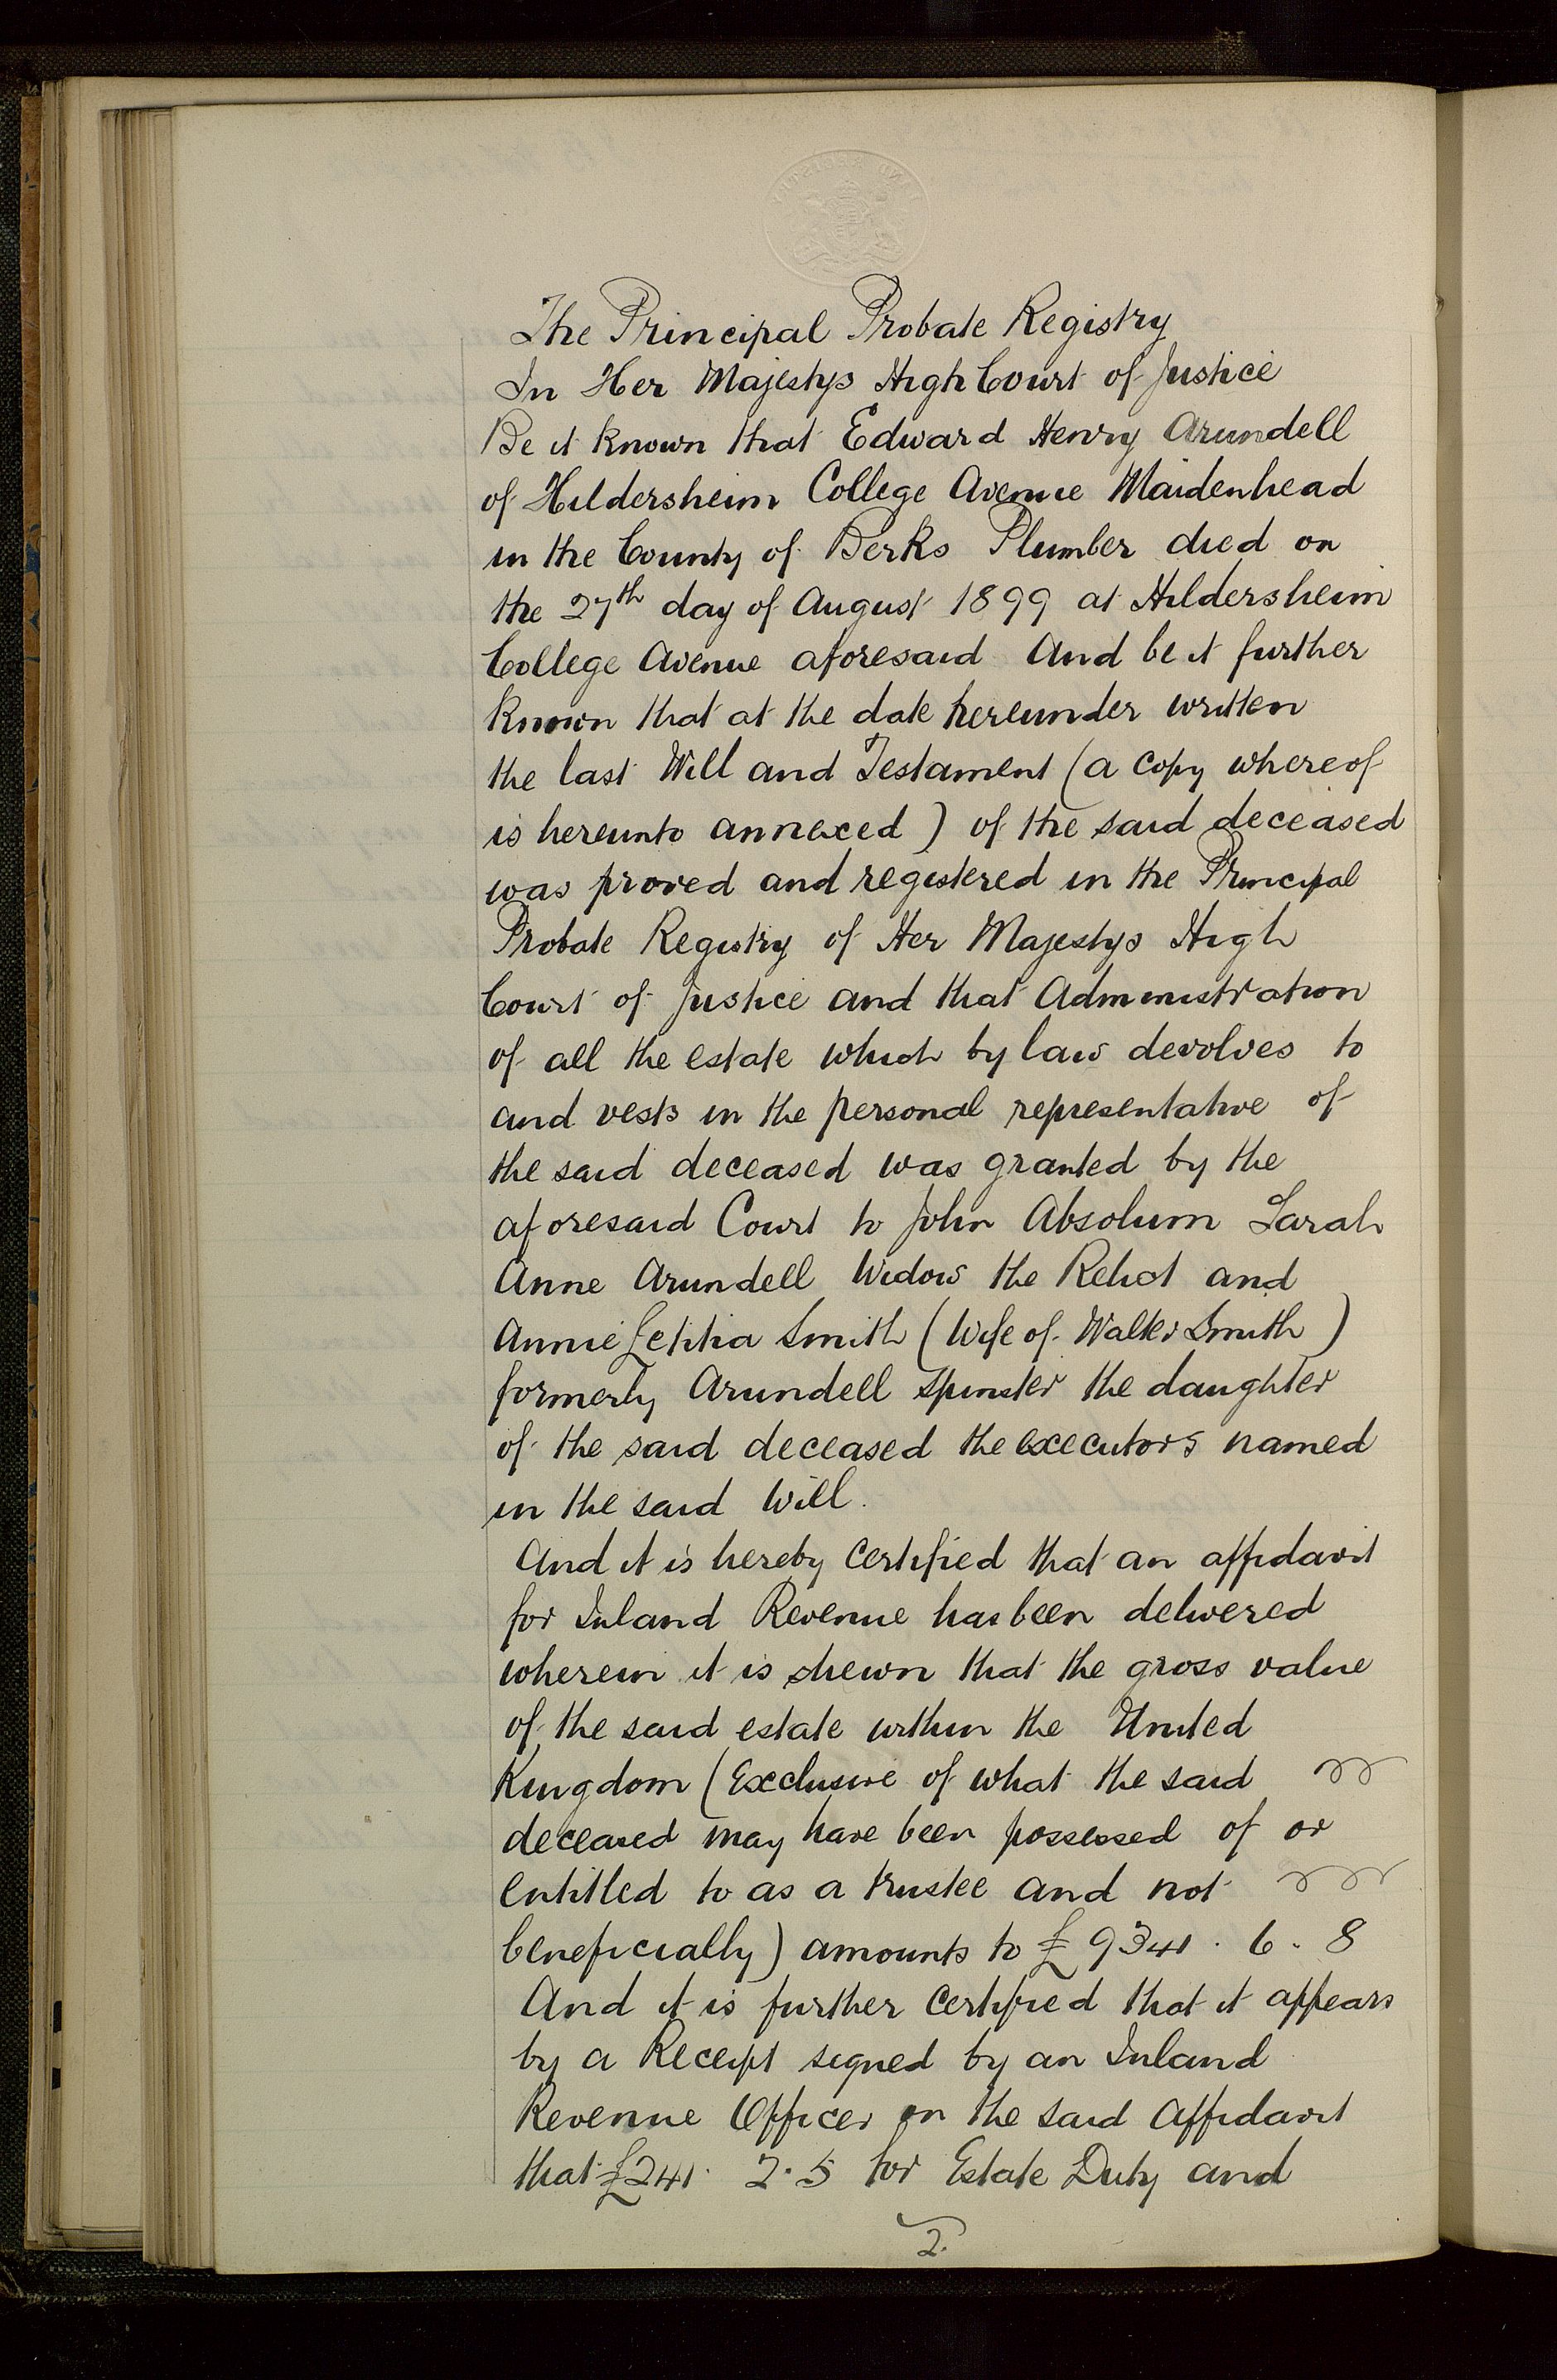 The Principal Probate Registry
In Her Majestys High Court of Justice
Be it known that Edward Henry Arundell
of Hildersheim College Avenue Maidenhead
in the County of Berks Plumber died on
the 27th day of August 1899 at Hildersheim
College Avenue aforesaid And be it further
known that at the date hereunder written
the last Will and Testament (a copy whereof
is hereunto annexed) of the said deceased
was proved and registered in the Principal
Probate Registry of Her Majestys High
Court of Justice and that Administration
of all the estate which by law devolves to
and vests in the personal representative of
the said deceased was granted by the
aforesaid Court to John Absolum Sarah
Anne Arundell Widow the Relict and
Annie Letitia Smith (Wife of Walter Smith)
formerly Arundell Spinster the daughter
of the said deceased the executors named
in the said Will.
And it is hereby certified that an affidavit
for Inland Revenue has been delivered
wherein it is shewn that the gross value
of the said estate within the United
Kingdom (Exclusive of what the said
deceased may have been possessed of or
entitled to as a trustee and not
beneficially) amounts to £9341. 6. 8
And it is further certified that it appears
by a Receipt signed by an Inland
Revenue Officer on the said Affidavit
that £241. 2. 5 for Estate Duty and
2.